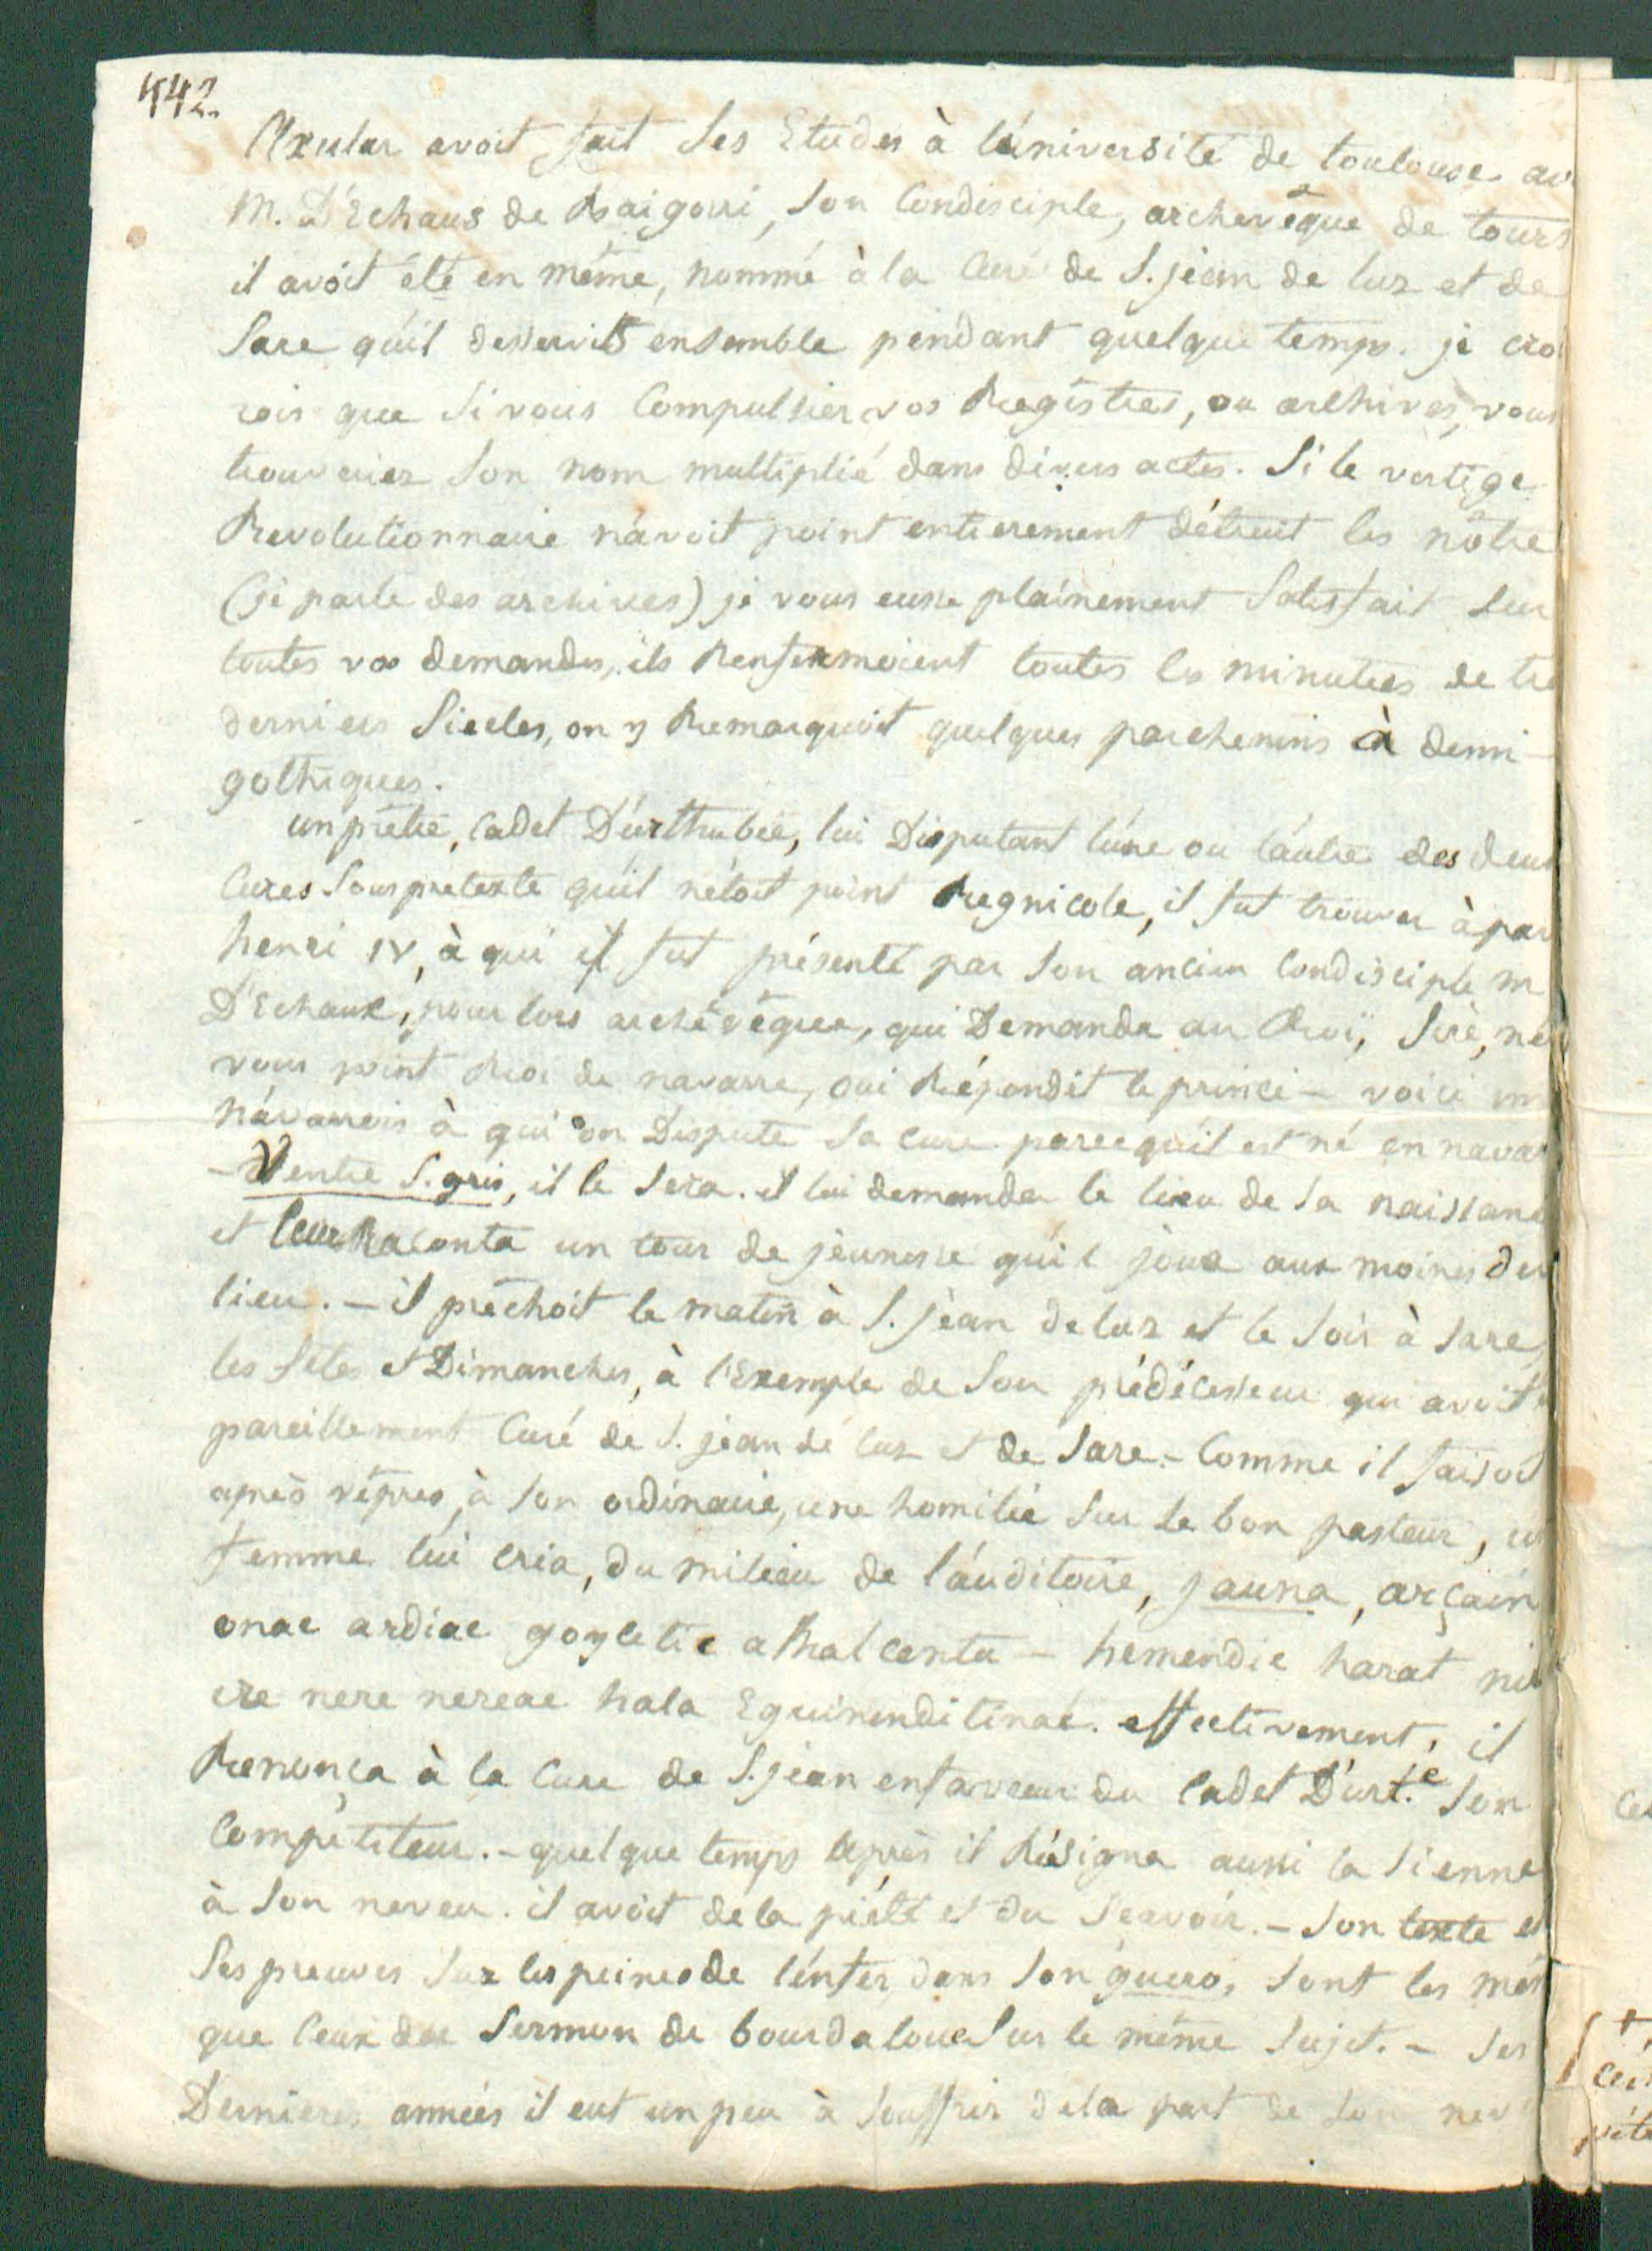 442.
Axular avoit fait ses Etudes à l'université de toulouse av
M. D'Echaus de Baigorri, son Condisciple, archevêque de tours
il avoit été en même, nommé à la Cure de S. jean de luz et de
Sare qu'il desservit ensemble pendant quelque temps. je cro
rois que si vous Compulsiez vos Registres, ou archives, vous
trouveriez son nom multiplié dans divers actes. Si le vertige
Revolutionnaire n'avoit point entierement détruit les nôtre
(je parle des archives) je vous eusse plainement satisfait sur
toutes vos demandes, ils Renfermoient toutes les minutes de tr
derniers Siecles, on y Remarquoit quelques parchemins à demi-
gothiques.
un prêtre, Cadet D'urthubie, lui Disputant l'une ou l'autre des deux
Cures sous pretexte qu'il n'étoit point Regnicole, il fut trouver à par
henri IV, à qui il fut présenté par son ancien Condisciple m
D'Echaux, pour lors archévêque, qui Demanda au Roi, Sire, n'ê
vous point Roi de navarre, oui Répondit le prince - voici un
návarrois à qui on Dispute sa cure parcequ'il est né en navar
- Ventre S. gris, il le sera. il lui demanda le lieu de sa naissanc
et leur Raconta un tour de jeunesse qu'il joua aux moines du
lieu. - il prêchoit le matin à S. jean de luz et le soir à Sare,
les fêtes et Dimanches, à l'Exemple de son prédécesseur qui avoit é
pareillement Curé de S. jean de luz et de Sare. - Comme il faisoit
après vêpres, à son ordinaire, une homilie sur le bon pasteur, un
femme lui cria, du milieu de l'auditoire, jauna, arçain
onac ardiac goyctic a Rhalcenta - hemendic harat ni
ere nere nereac hala Eguinenditinac. effectivement, il
Renonça à la Cure de S. jean en faveur du Cadet D'urt.e son
Compétiteur. - quelque temps après il Résigna aussi la sienne
à son neveu. il avoit de la piété et du sçavoir. - son texte et
ses preuves sur les peines de l'enfer, dans son guero, sont les mêm
que ceux du Sermon de bourdaloue sur le même sujet. - ses
Dernieres années il eut un peu à souffrir de la part de son nev